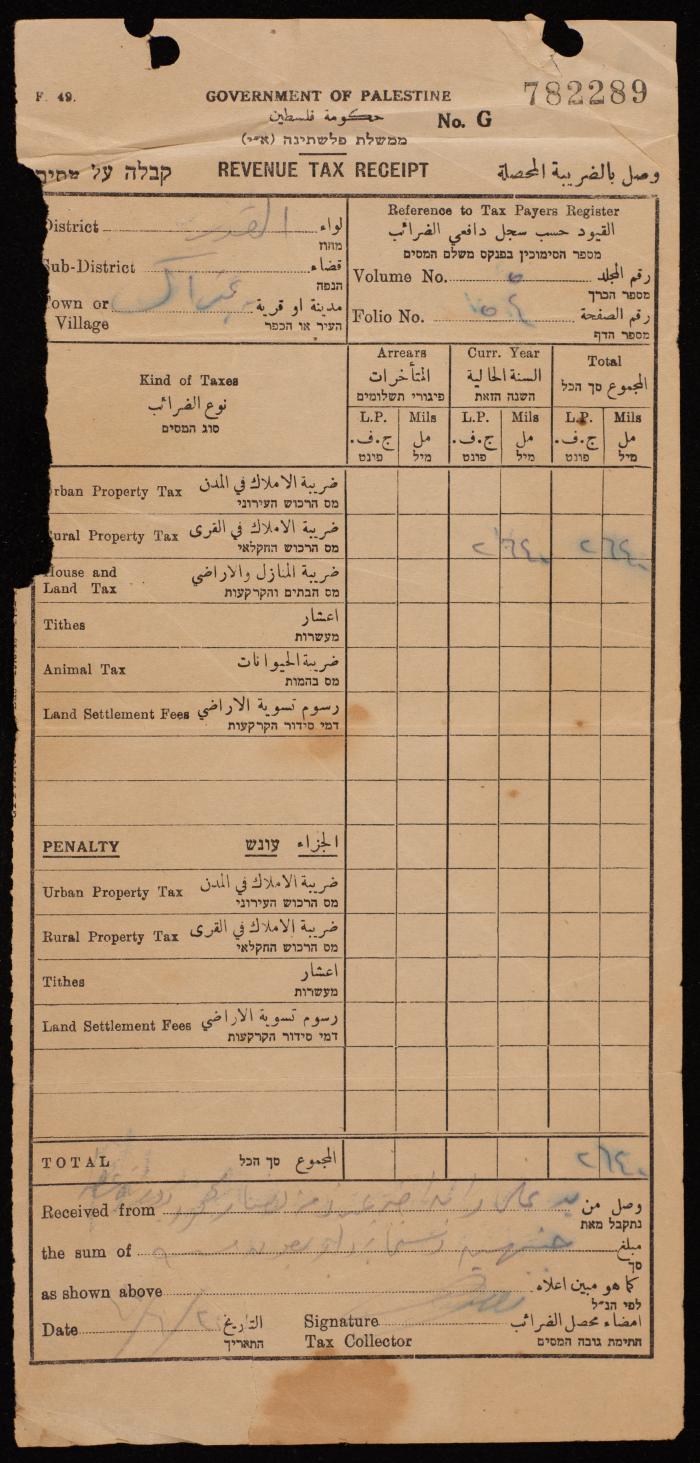 F. 49.
GOVERNMENT OF PALESTINE
782289
حكومة فلسطين
No. G
ממשלת פלשתינה (א״י)
קבלה על
REVENUE TAX RECEIPT
وصل بالضريبة المحصلة
District
القدس
لواء
מחוז
Sub-District
قضاء
הנפה
Town or Village
مدينة او قرية
העיר או הכפר
Reference to Tax Payers Register
القيود حسب سجل دافعي الضرائب
מספר הסימוכין בפנקס משלם המסים
Volume No.
٥
رقم المجلد
מספר הכרך
Folio No.
رقم الصفحة
מספר הדף
Kind of Taxes
نوع الضرائب
סוג המסים
Arrears
المتأخرات
פיגורי תשלומים
Curr. Year
السنة الحالية
השנה הזאת
Total
المجموع סך הכל
L.P. Mils L.P. Mils L.P. Mils
ج.ف. مل ج.ف. مل ج.ف. مل
פונט מיל פונט מיל פונט מיל
rban Property Tax
ضريبة الاملاك في المدن
מס הרכוש העירוני
ural Property Tax
ضريبة الاملاك في القرى
מס הרכוש החקלאי
٢ ٦٤٠
٢ ٦٤٠
House and Land Tax
ضريبة المنازل والاراضي
מס הבתים והקרקעות
Tithes
اعشار
מעשרות
Animal Tax
ضريبة الحيوانات
מס בהמות
Land Settlement Fees
رسوم تسوية الاراضي
דמי סידור הקרקעות
PENALTY עונש الجزاء
Urban Property Tax
ضريبة الاملاك في المدن
מס הרכוש העירוני
Rural Property Tax
ضريبة الاملاك في القرى
מס הרכוש החקלאי
Tithes
اعشار
מעשרות
Land Settlement Fees
رسوم تسوية الاراضي
דמי סידור הקרקעות
TOTAL סך הכל المجموع
٢ ٦٤٠
Received from
وصل من
נתקבל מאת
the sum of
مبلغ
סך
as shown above
كما هو مبين اعلاه
לפי הנ״ל
Date
التاريخ
התאריך
Signature
Tax Collector
امضاء محصل الضرائب
חתימת גובה המסים